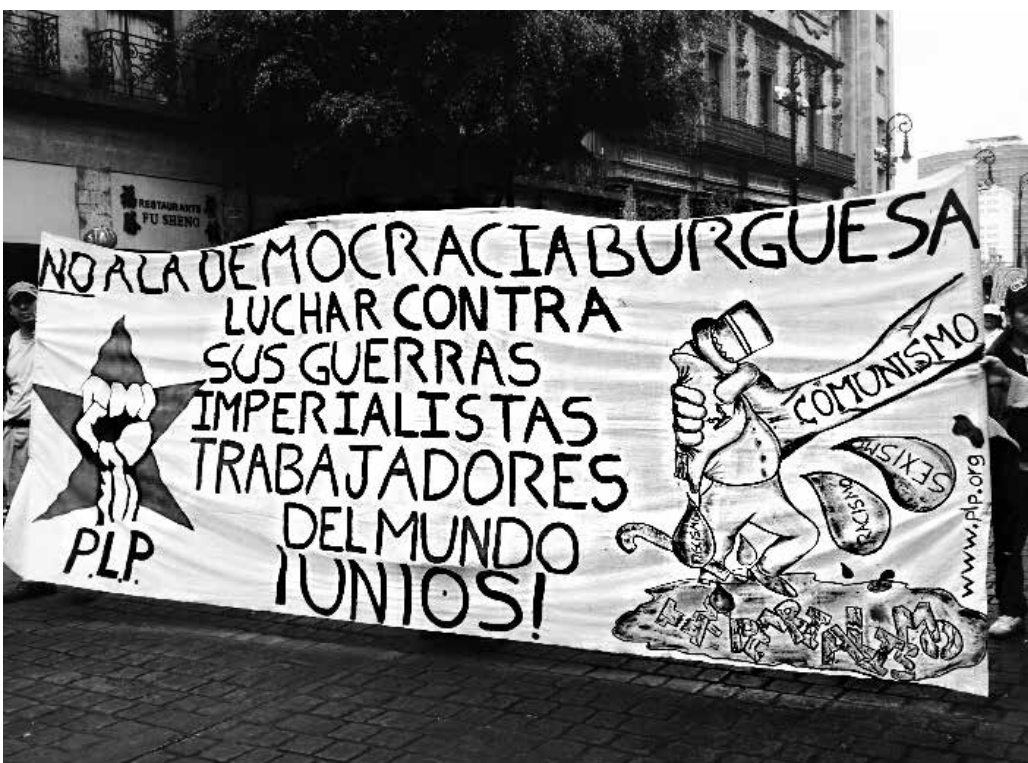 RESTAURANTE
FU SHENG
NO A LA DEMOCRACIA BURGUESA
LUCHAR CONTRA
SUS GUERRAS
IMPERIALISTAS
TRABAJADORES
DEL MUNDO
¡UNIOS!
P.L.P.
COMUNISMO
SEXISMO
RACISMO
FASCISMO
IMPERIALISMO
www.plp.org